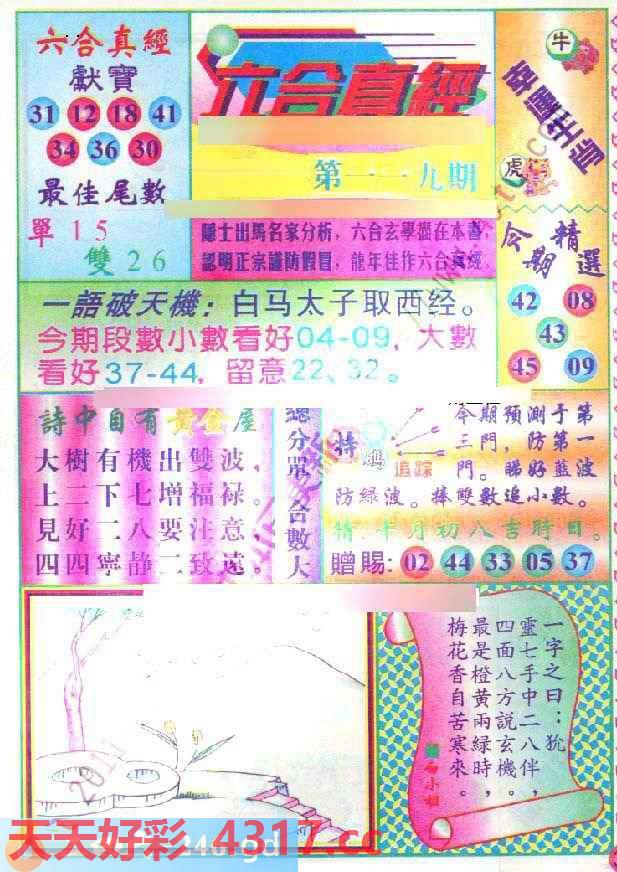 六合真經
獻寶
31 12 18 41
34 36 30
最佳尾數
單15
雙26
六合真經
第一一九期
隱士出馬名家分析，六合玄學盡在本書，
認明正宗謹防假冒，龍年佳作六合真經。
牛
虎
今期精選
42 08
43
45 09
一語破天機：白马太子取西经。
今期段數小數看好04-09，大數
看好37-44，留意22、32。
詩中自有黃金屋
大樹有機出雙波，
上二下七增福禄。
見好二八要注意，
四四寧静二致遠。
總分單 合數大
特
追踪
今期預測于第
三門，防第一
門。睇好藍波
防緑波。捧雙數追小數。
情：十月初八吉時日。
贈賜：02 44 33 05 37
一字之曰：犹
靈七手中二八伴，
四面八方說玄機。
最是橙黄兩緑時，
梅花香自苦寒來。
天天好彩 4317.cc